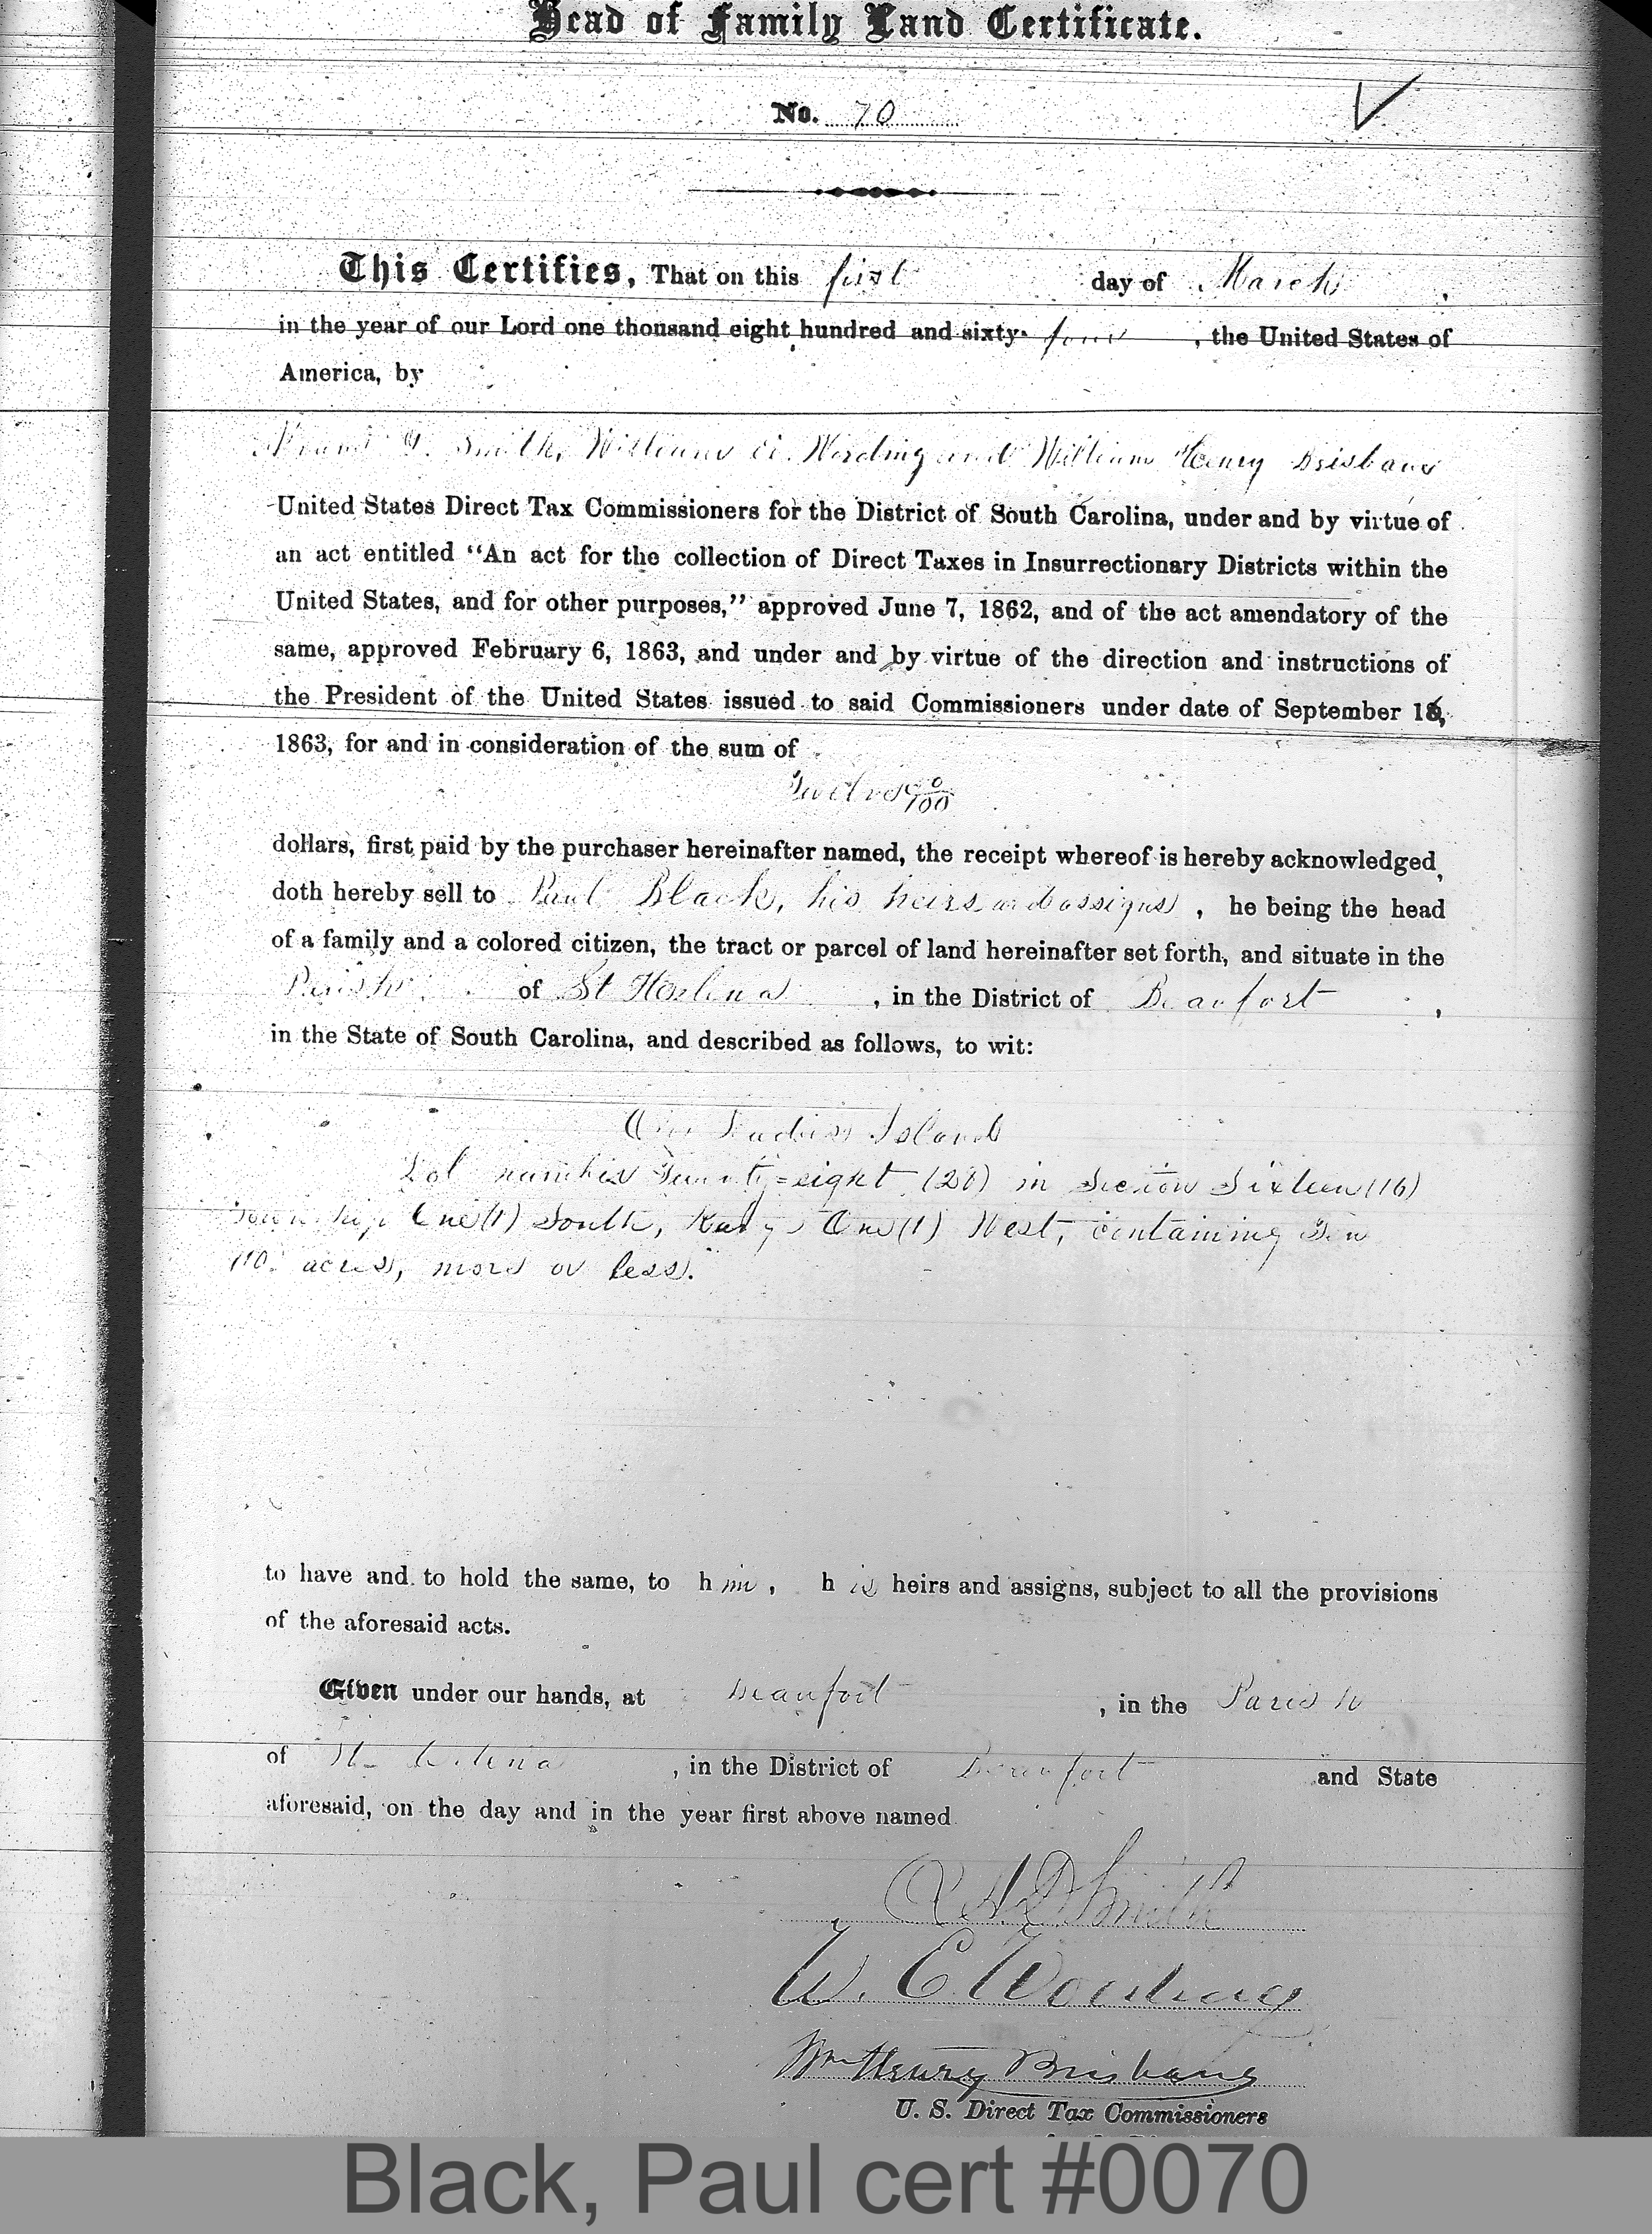 Head of Family Land Certificate.
No. 70
This Certifies, That on this first day of March,
in the year of our Lord one thousand eight hundred and sixty-four, the United States of
America, by
Smith, William E. Wording and William Henry Brisbane
United States Direct Tax Commissioners for the District of South Carolina, under and by virtue of
an act entitled “An act for the collection of Direct Taxes in Insurrectionary Districts within the
United States, and for other purposes,” approved June 7, 1862, and of the act amendatory of the
same, approved February 6, 1863, and under and by virtue of the direction and instructions of
the President of the United States issued to said Commissioners under date of September 16,
1863, for and in consideration of the sum of
Twelve 00/100
dollars, first paid by the purchaser hereinafter named, the receipt whereof is hereby acknowledged,
doth hereby sell to Paul Black, his heirs and assigns, he being the head
of a family and a colored citizen, the tract or parcel of land hereinafter set forth, and situate in the
Parish of St Helena, in the District of Beaufort,
in the State of South Carolina, and described as follows, to wit:
On Ladies Island
Lot number Twenty=eight (28) in Section Sixteen (16)
Township One (1) South, Range One (1) West, containing Ten
(10) acres, more or less.
to have and to hold the same, to him, his heirs and assigns, subject to all the provisions
of the aforesaid acts.
Given under our hands, at Beaufort, in the Parish
of St. Helena, in the District of Beaufort and State
aforesaid, on the day and in the year first above named.
Smith
W. E. Wording
Wm Henry Brisbane
U. S. Direct Tax Commissioners
Black, Paul cert #0070